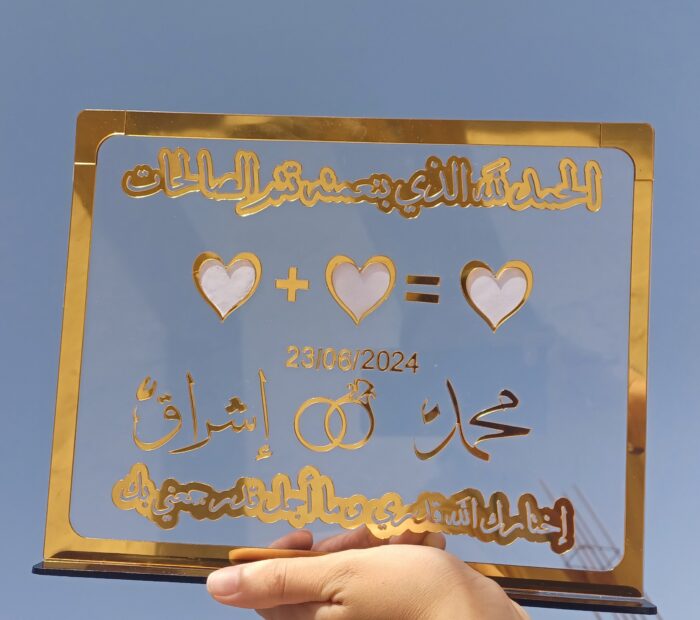 الحمد لله الذي بنعمته تتم الصالحات
+ =
23/06/2024
محمد إشراق
إختارك الله قدري وما أجمل قدر جمعني بك